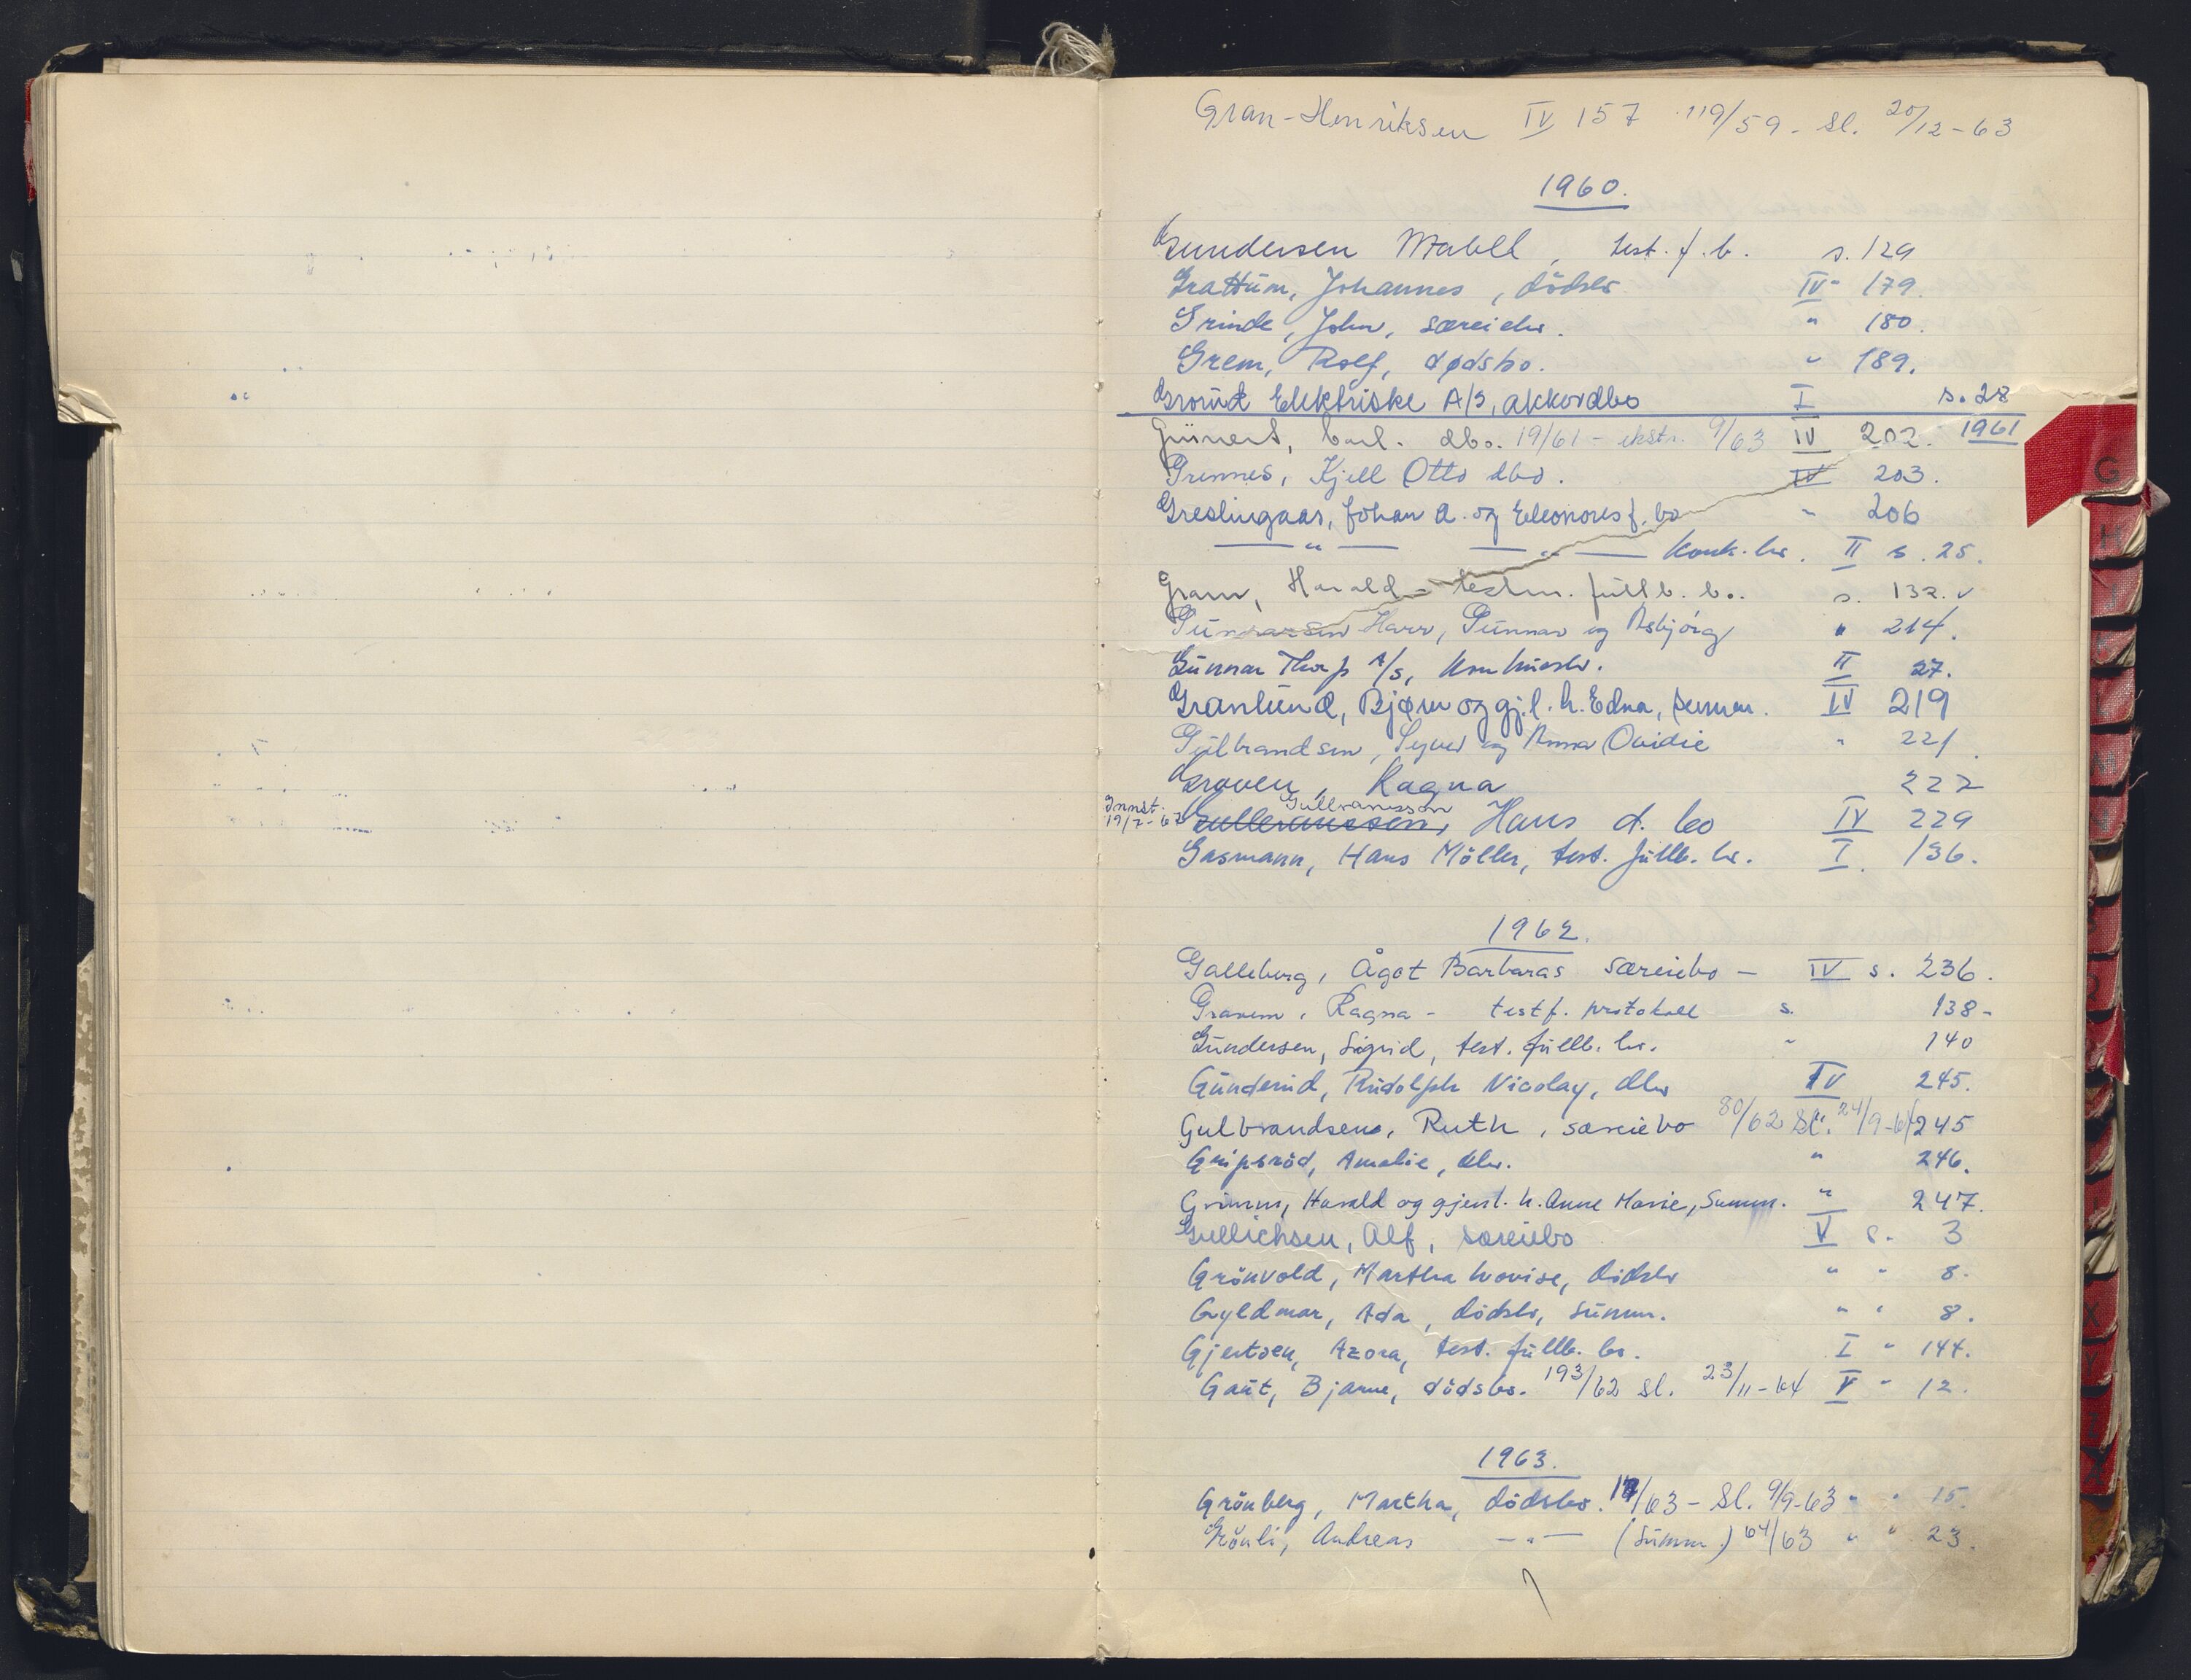 Gran-Henriksen IV 157 119/59 - Sl. 20/12-63
1960.
Gundersen Mabell, test. f. b. s. 129
Grattum, Johannes, dödsbo IV - 179.
Grinde, John, særeiebo. " 180.
Grem, Rolf, dødsbo. " 189.
Grorud Elektriske A/S, akkordbo I s. 28
Günert, Carl. dbo. 19/61 - ekstr. 9/63 IV 202. 1961
Grennes, Kjell Otto dbo. IV 203.
Greslingaas, Johan A. og Eleonores f. bo " 206
— " — — " — konk. bo. II s. 25.
Gram, Harald - testm. fullb. bo. s. 132. v
Gunnarsen Harr, Gunnar og Asbjörg " 214.
Gunnar Thorp A/S, konkursbo. II 27.
Granlund, Bjørn og gj.l. h. Edna, summ. IV 219
Gulbrandsen, Syver og Anna Ovidie " 221
Graven, Ragna 222
Innst. 19/7-62 Gulleransson, Gullvansson Hans d. bo IV 229
Gasmann, Hans Möller, test. fullb. bo. I. 136.
1962.
Galleberg, Ågot Barbaras særeiebo - IV s. 236.
Gravem, Ragna - testf. protokoll s. 138-
Gundersen, Sigrid, test. fullb. bo. " 140
Gunderud, Rudolph Nicolay, dbo IV 245.
Gulbrandsens, Ruth, særeiebo 80/62 Sl. 24/9-64 245
Gripsröd, Amalie, dbo. " 246.
Grimm, Harald og gjenl. h. Anne Marie, Summ. " 247.
Gullichsen, Alf, særeiebo V s. 3
Grönvold, Martha Lovise, dödsbo " " 8.
Gyldmar, Ada, dödsbo, summ. " " 8.
Gjertsen, Azora, test. fullb. bo. I " 144.
Gaut, Bjarne, dödsbo. 193/62 Sl. 23/11-64 V " 12.
1963.
Grönberg, Martha, dödsbo. 17/63 - Sl. 9/9-63 " " 15.
Grönli, Andreas — " — (summ.) 64/63 " " 23.
G